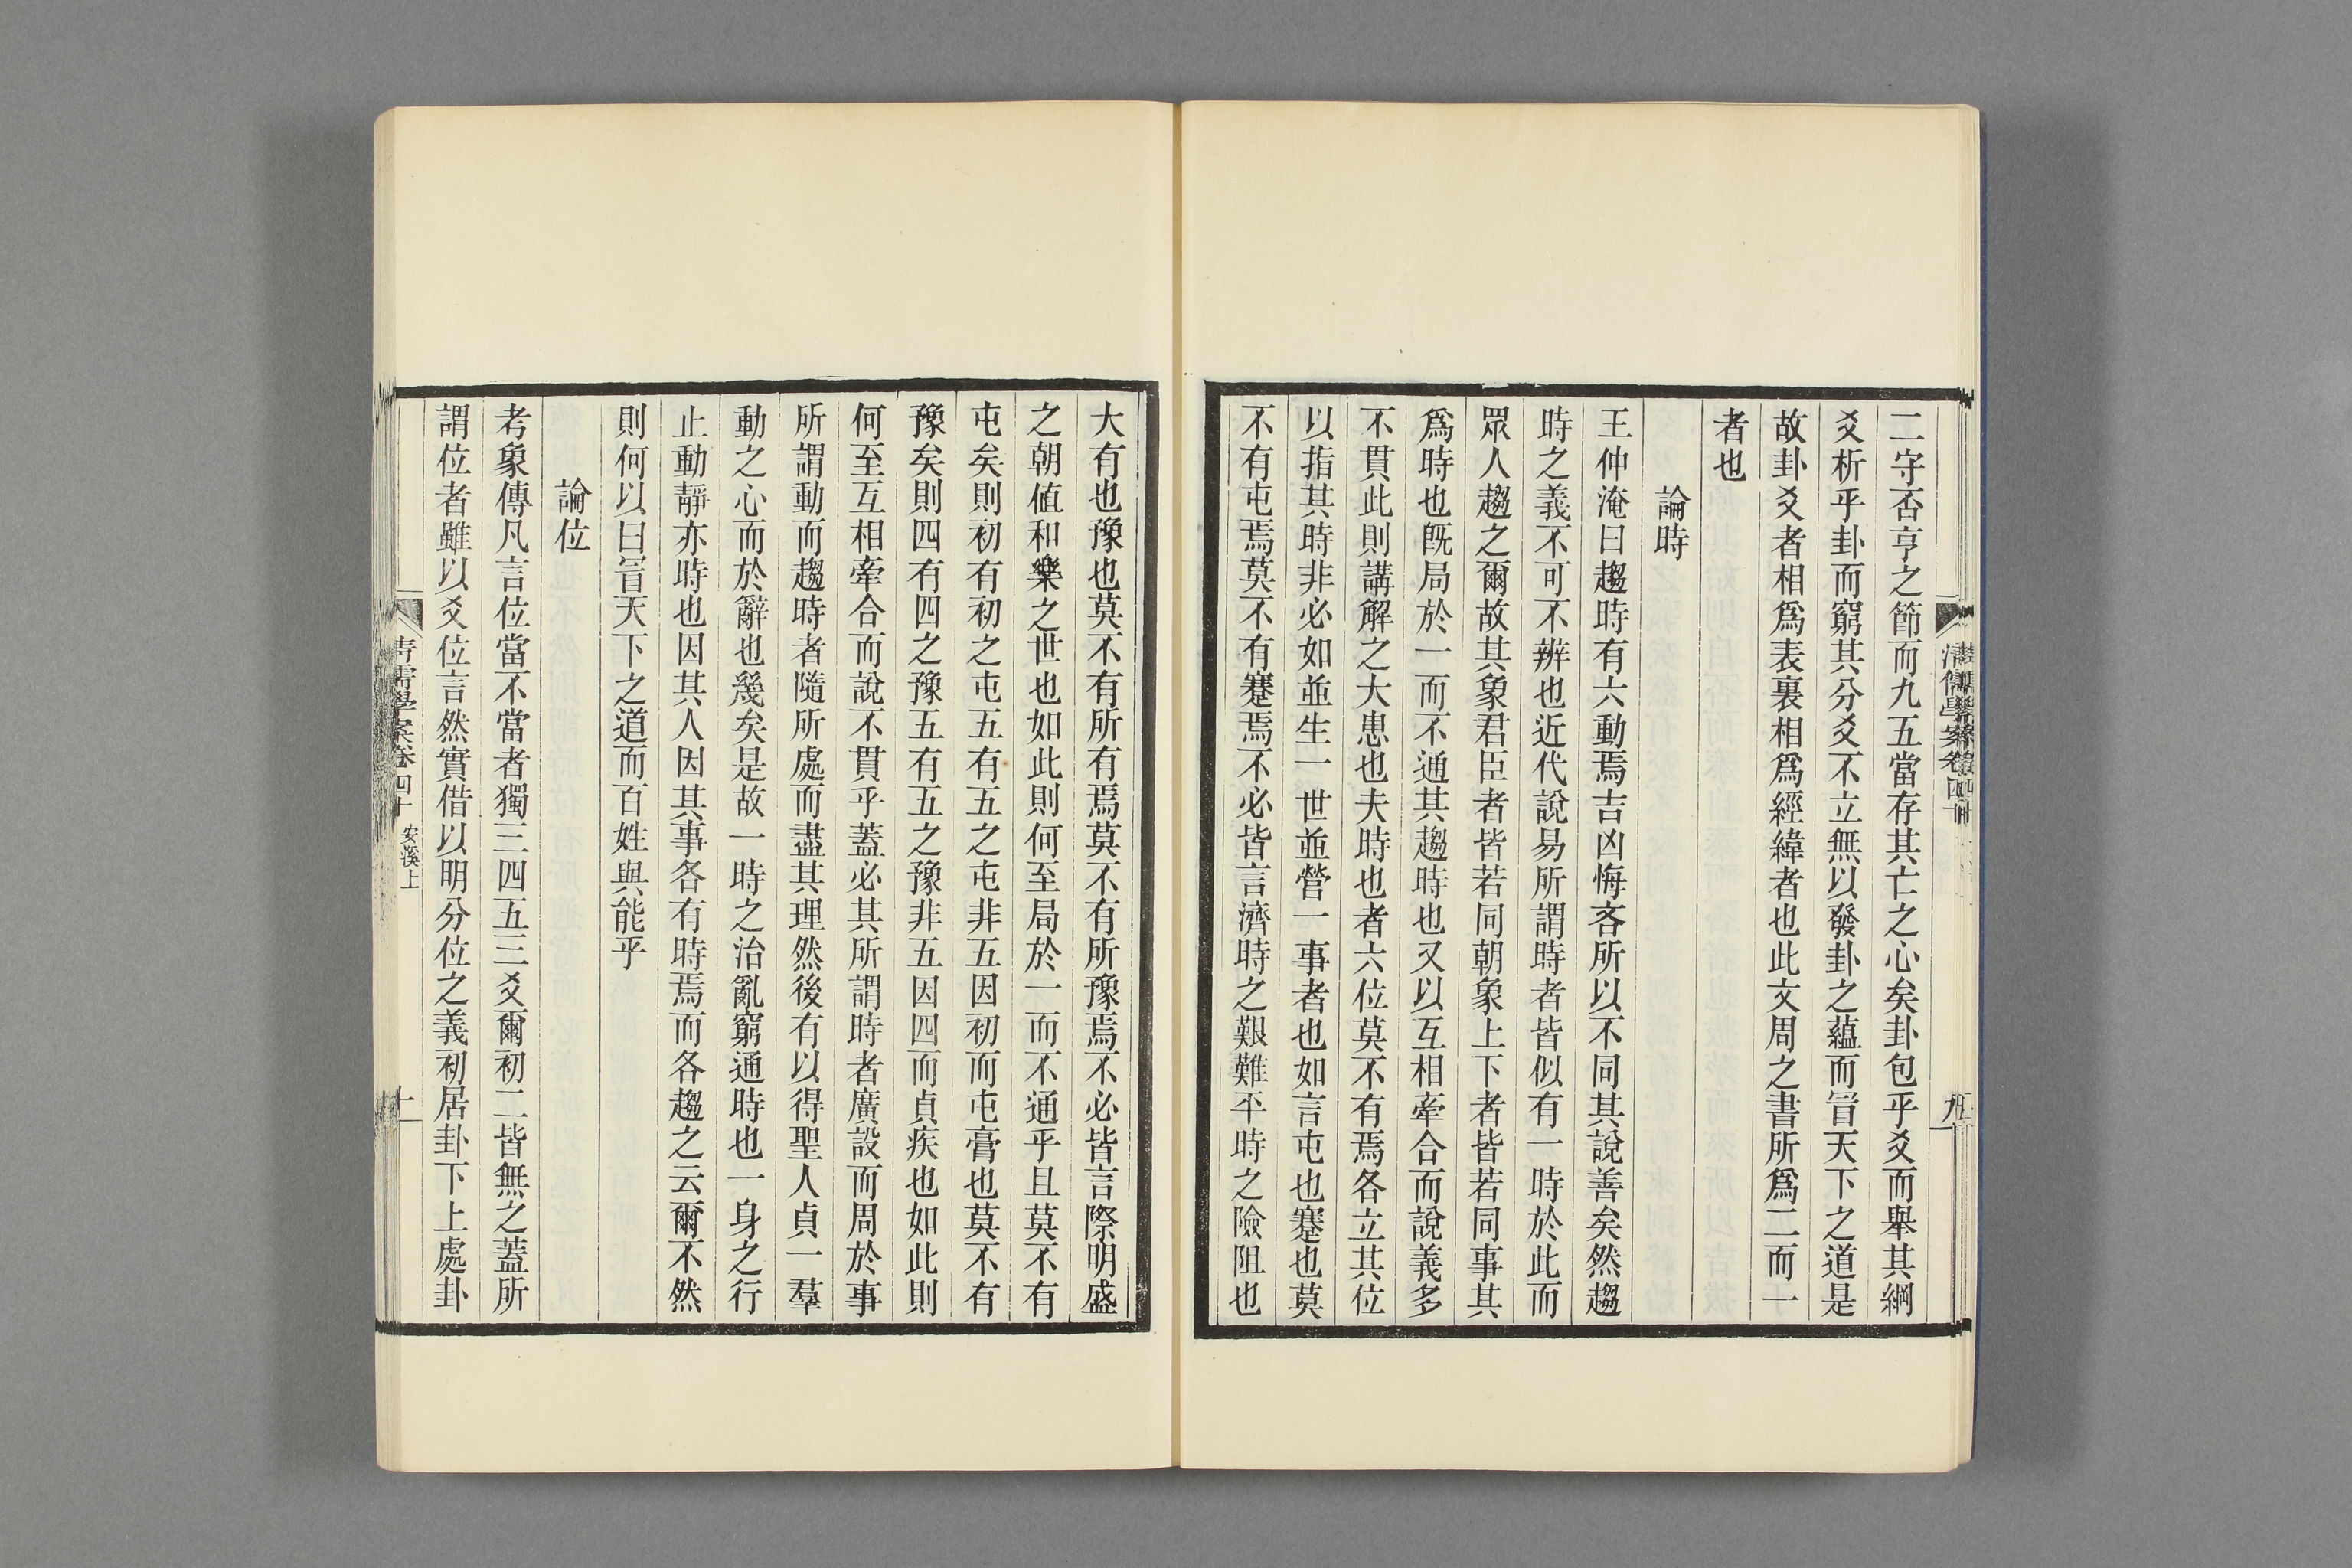 二守否亨之節而九五當存其亡之心矣卦包乎爻而舉其綱
爻析乎卦而窮其分爻不立無以發卦之蘊而冒天下之道是
故卦爻者相爲表裏相爲經緯者也此文周之書所爲二而一
者也
論時
王仲淹曰趨時有六動焉吉凶悔吝所以不同其說善矣然趨
時之義不可不辨也近代說易所謂時者皆似有一時於此而
眾人趨之爾故其象君臣者皆若同朝象上下者皆若同事其
爲時也旣局於一而不通其趨時也又以互相牽合而說義多
不貫此則講解之大患也夫時也者六位莫不有焉各立其位
以指其時非必如並生一世並營一事者也如言屯也蹇也莫
不有屯焉莫不有蹇焉不必皆言濟時之艱難平時之險阻也
大有也豫也莫不有所有焉莫不有所豫焉不必皆言際明盛
之朝值和樂之世也如此則何至局於一而不通乎且莫不有
屯矣則初有初之屯五有五之屯非五因初而屯膏也莫不有
豫矣則四有四之豫五有五之豫非五因四而貞疾也如此則
何至互相牽合而說不貫乎蓋必其所謂時者廣設而周於事
所謂動而趨時者隨所處而盡其理然後有以得聖人貞一羣
動之心而於辭也幾矣是故一時之治亂窮通時也一身之行
止動靜亦時也因其人因其事各有時焉而各趨之云爾不然
則何以曰冒天下之道而百姓與能乎
論位
考象傳凡言位當不當者獨三四五三爻爾初二皆無之蓋所
謂位者雖以爻位言然實借以明分位之義初居卦下上處卦
清儒學案卷四十 安溪上
十